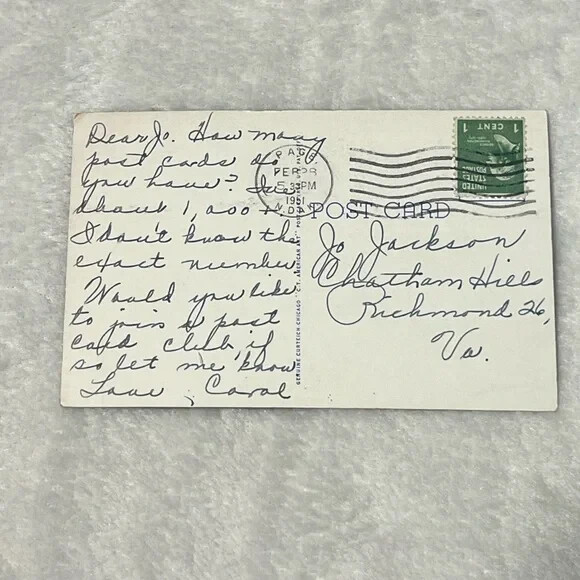 Dear Jo. How many
post cards do
you have? I've
about 1,000 +
I don't know the
exact number
Would you like
to join a post
card club, if
so let me know
Love, Carol
PAGE
FEB 28
5 30 PM
1951
N.DAK.
1 CENT 1
UNITED
STATES
POSTAGE
POST CARD
Jo Jackson
Chatham Hills
Richmond 26,
Va.
GENUINE CURTEICH-CHICAGO "C.T. AMERICAN ART" POST